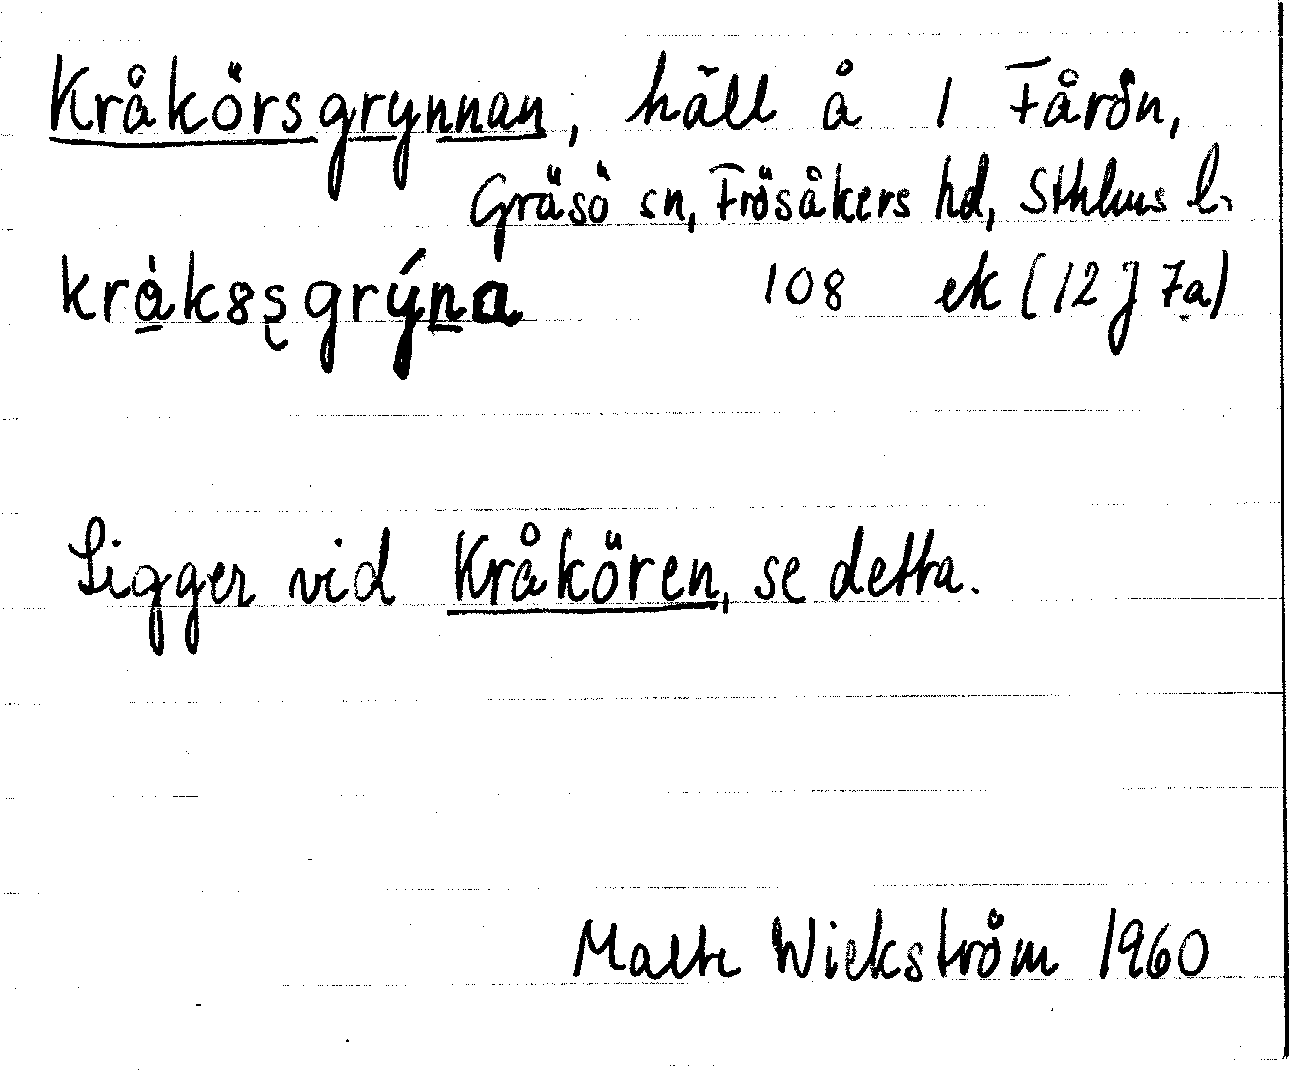 Kråkörsgrynnan, häll å 1 Fårön,
Gräsö sn, Frösåkers hd, Sthlms l.
kråk8s̨grýna 108 ek (12 J 7a)
Ligger vid Kråkören, se detta.
Malte Wickström 1960